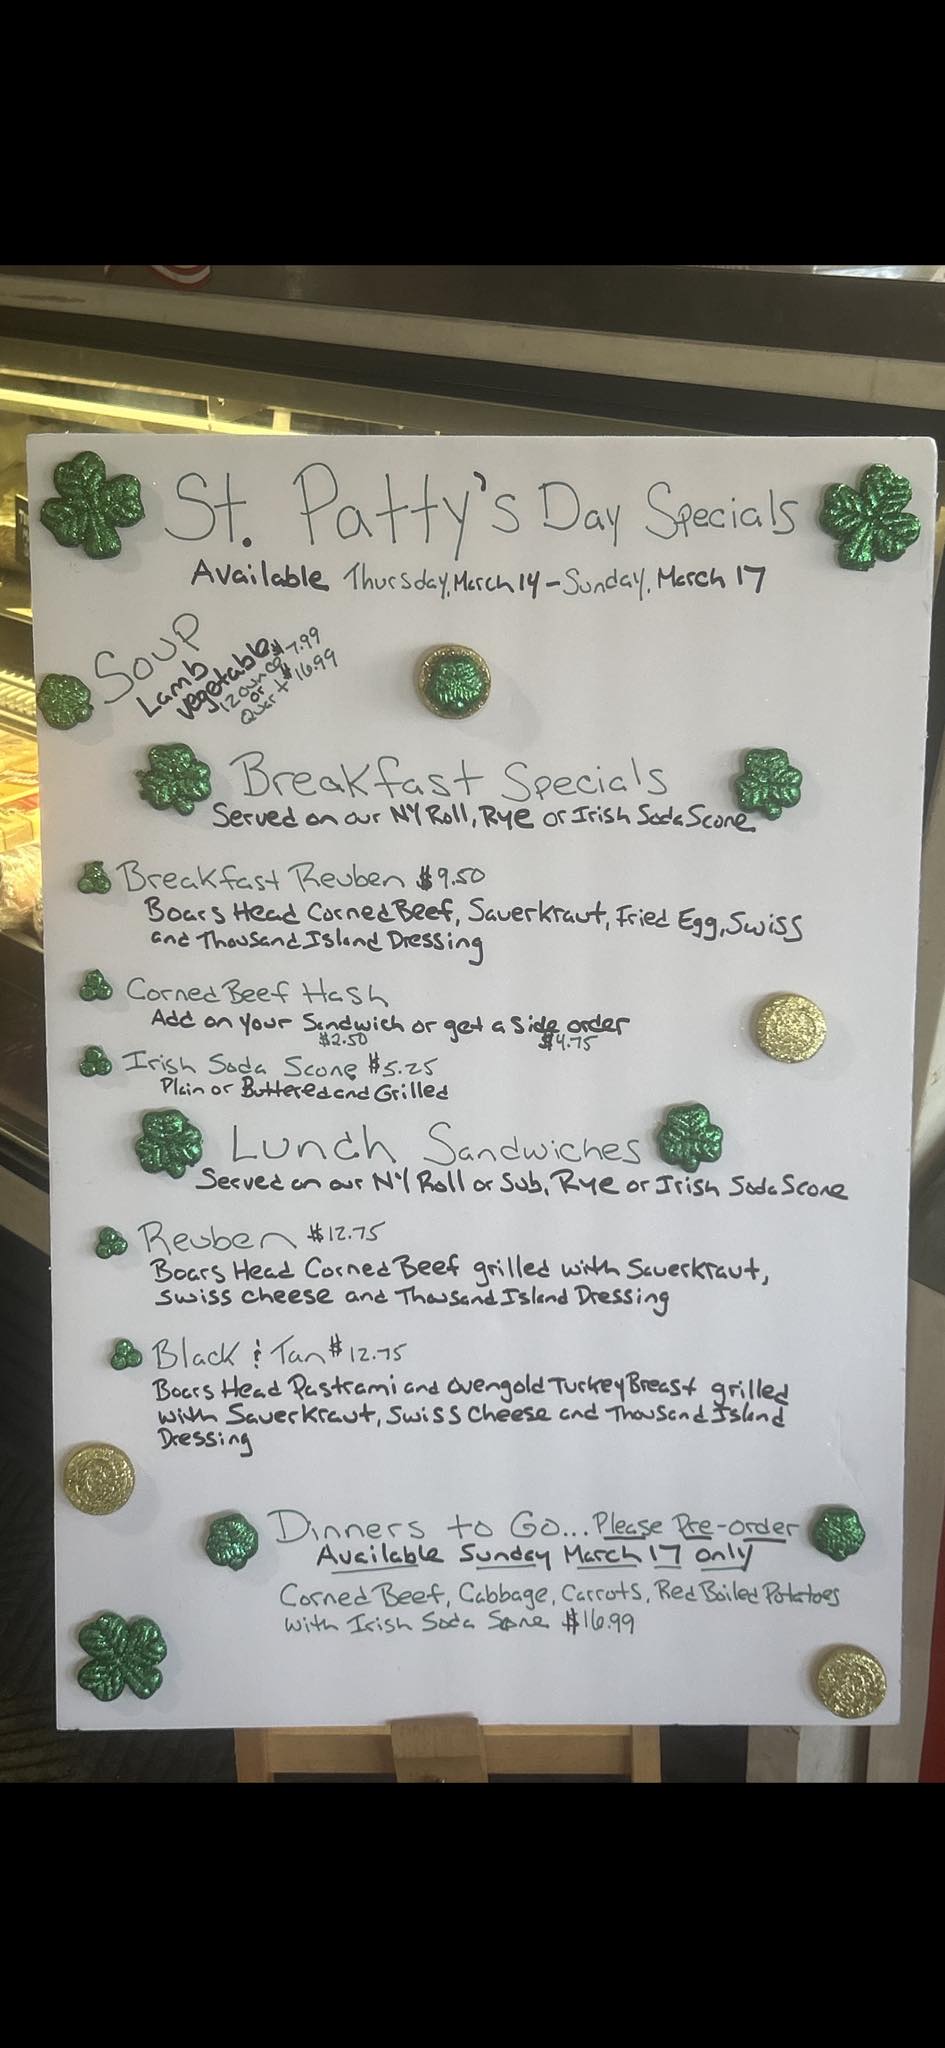 St. Patty's Day Specials
Available Thursday, March 14 - Sunday, March 17
Soup
Lamb
Vegetable
12 ounce $7.99
or
Quart $16.99
Breakfast Specials
Served on our NY Roll, Rye or Irish Soda Scone
Breakfast Reuben $9.50
Boars Head Corned Beef, Sauerkraut, Fried Egg, Swiss
and Thousand Island Dressing
Corned Beef Hash
Add on your Sandwich or get a side order
$2.50 $4.75
Irish Soda Scone $5.25
Plain or Buttered and Grilled
Lunch Sandwiches
Served on our NY Roll or Sub, Rye or Irish Soda Scone
Reuben $12.75
Boars Head Corned Beef grilled with Sauerkraut,
Swiss cheese and Thousand Island Dressing
Black & Tan $12.75
Boars Head Pastrami and Ovengold Turkey Breast grilled
with Sauerkraut, Swiss Cheese and Thousand Island
Dressing
Dinners to Go... Please Pre-order
Available Sunday March 17 only
Corned Beef, Cabbage, Carrots, Red Boiled Potatoes
with Irish Soda Scone $16.99